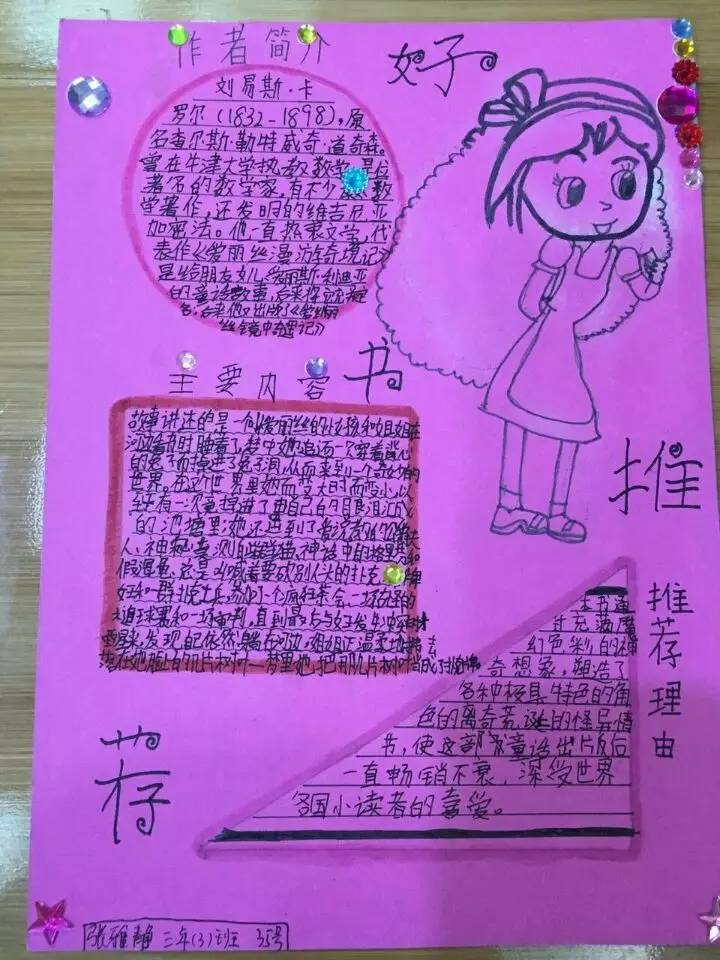 好
书
推
荐
作者简介
刘易斯·卡
罗尔(1832-1898),原
名查尔斯·勒特威奇·道奇森。
曾在牛津大学执教数学,是位
著名的数学家,有不少数
学著作,还发明的维吉尼亚
加密法。他一直热衷文学,代
表作《爱丽丝漫游奇境记》
是给朋友女儿爱丽斯·利迪亚
的童话故事,后来
名,后来他又出版了《爱丽
丝镜中遇记》
主要内容
故事讲述的是一个叫爱丽丝的女孩和姐姐在
河边看书时睡着了,梦中她追逐一次穿着背心
的兔子而掉进了兔子洞,从而来到一个奇妙的
世界。在这个世界里她时而变大时而变小,以
至于有一次竟掉进了由自己的眼泪汇成
的池塘里;她还遇到了
人、神秘莫测的柴郡猫、神话中的格里芬和
假海龟、总是叫喊着要砍别人头的扑克牌
红王后和一群扑克士兵,参加了一个疯狂茶会、一场古怪的
槌球赛和一场审判,直到最后与红王后发生冲突时才
醒来,发现自己依然躺在河边,姐姐正温柔地拂去
落在她脸上的几片树叶——梦里她把那几片树叶当成了扑克牌。
推荐理由
本书通
过充满魔
幻色彩的神
奇想象,塑造了
各种极具特色的角
色的离奇荒诞的怪异情
书,使这部童话出片反后
一直畅销不衰,深受世界
各国小读者的喜爱。
张雅静 三年(3)班 35号